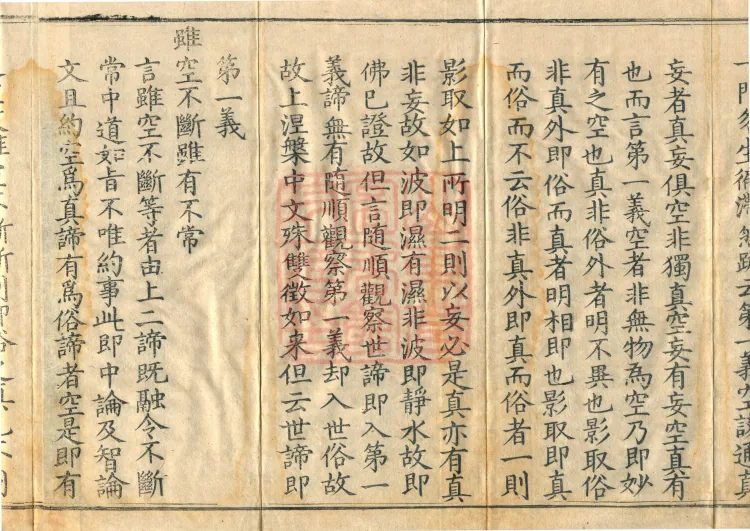 門
第一義空該通真
妄者真妄俱空非獨真空妄有妄空真有
也而言第一義空者非無物為空乃即妙
有之空也真非俗外者明不異也影取俗
非真外即俗而真者明相即也影取即真
而俗而不云俗非真外即真而俗者一則
影取如上所明二則以妄必是真亦有真
非妄故如波即濕有濕非波即靜水故即
佛已證故但言随順觀察世諦即入第一
義諦無有随順觀察第一義却入世俗故
故上涅槃中文殊雙徵如来但云世諦即
第一義
雖空不斷雖有不常
言雖空不斷等者由上二諦既融令不斷
常中道如旨不唯約事此即中論及智論
文且約空爲真諦有爲俗諦者空是即有